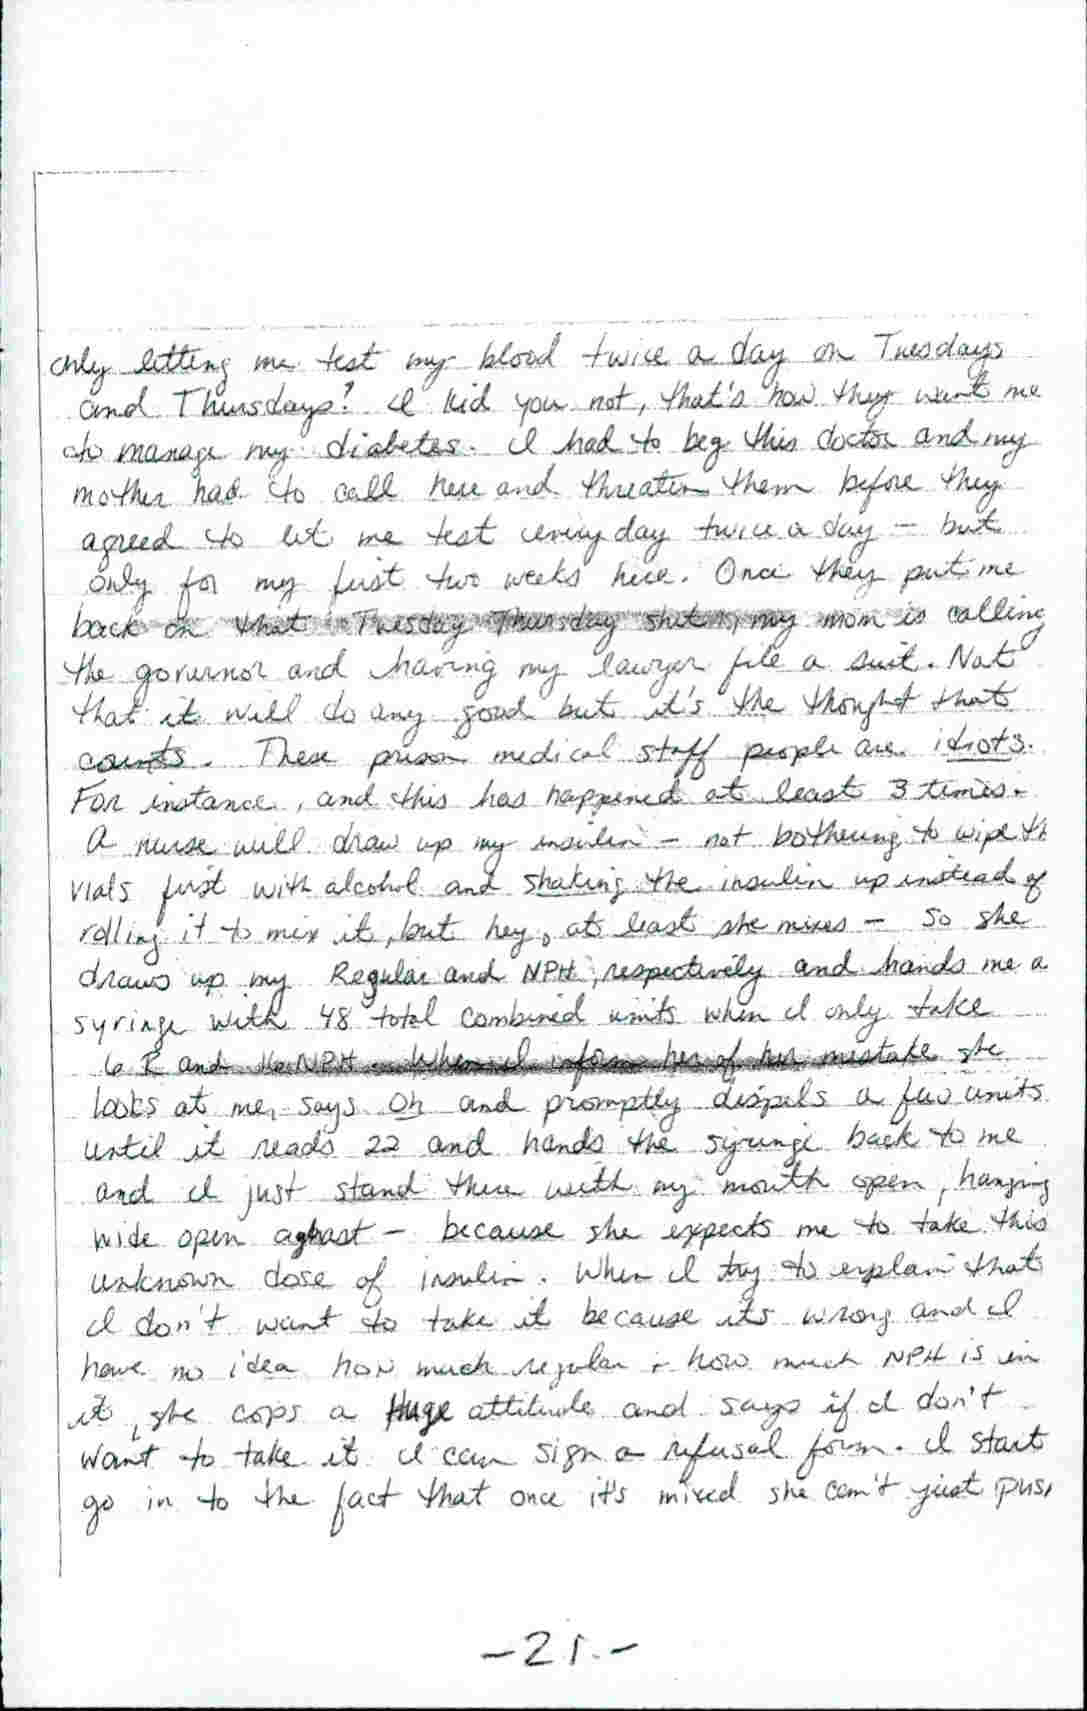 only letting me test my blood twice a day on Tuesdays
and Thursdays? I kid you not, that's how they want me
to manage my diabetes. I had to beg this doctor and my
mother had to call here and threaten them before they
agreed to let me test everyday twice a day - but
only for my first two weeks here. Once they put me
back on that Tuesday Thursday shit, my mom is calling
the governor and having my lawyer file a suit. Not
that it will do any good but it's the thought that
counts. These prison medical staff people are idiots.
For instance, and this has happened at least 3 times.
A nurse will draw up my insulin - not bothering to wipe th
vials first with alcohol and shaking the insulin up instead of
rolling it to mix it, but hey, at least she mixes - so she
draws up my Regular and NPH, respectively and hands me a
syringe with 48 total combined units when I only take
6 R and 16 NPH. When I inform her of her mistake she
looks at me, says Oh and promptly dispels a few units
until it reads 22 and hands the syringe back to me
and I just stand there with my mouth open, hanging
wide open aghast - because she expects me to take this
unknown dose of insulin. When I try to explain that
I don't want to take it because its wrong and I
have no idea how much regular + how much NPH is in
it, she cops a Huge attitude and says if I don't
want to take it I can sign a refusal form. I start
go in to the fact that once it's mixed she can't just pus
-21.-